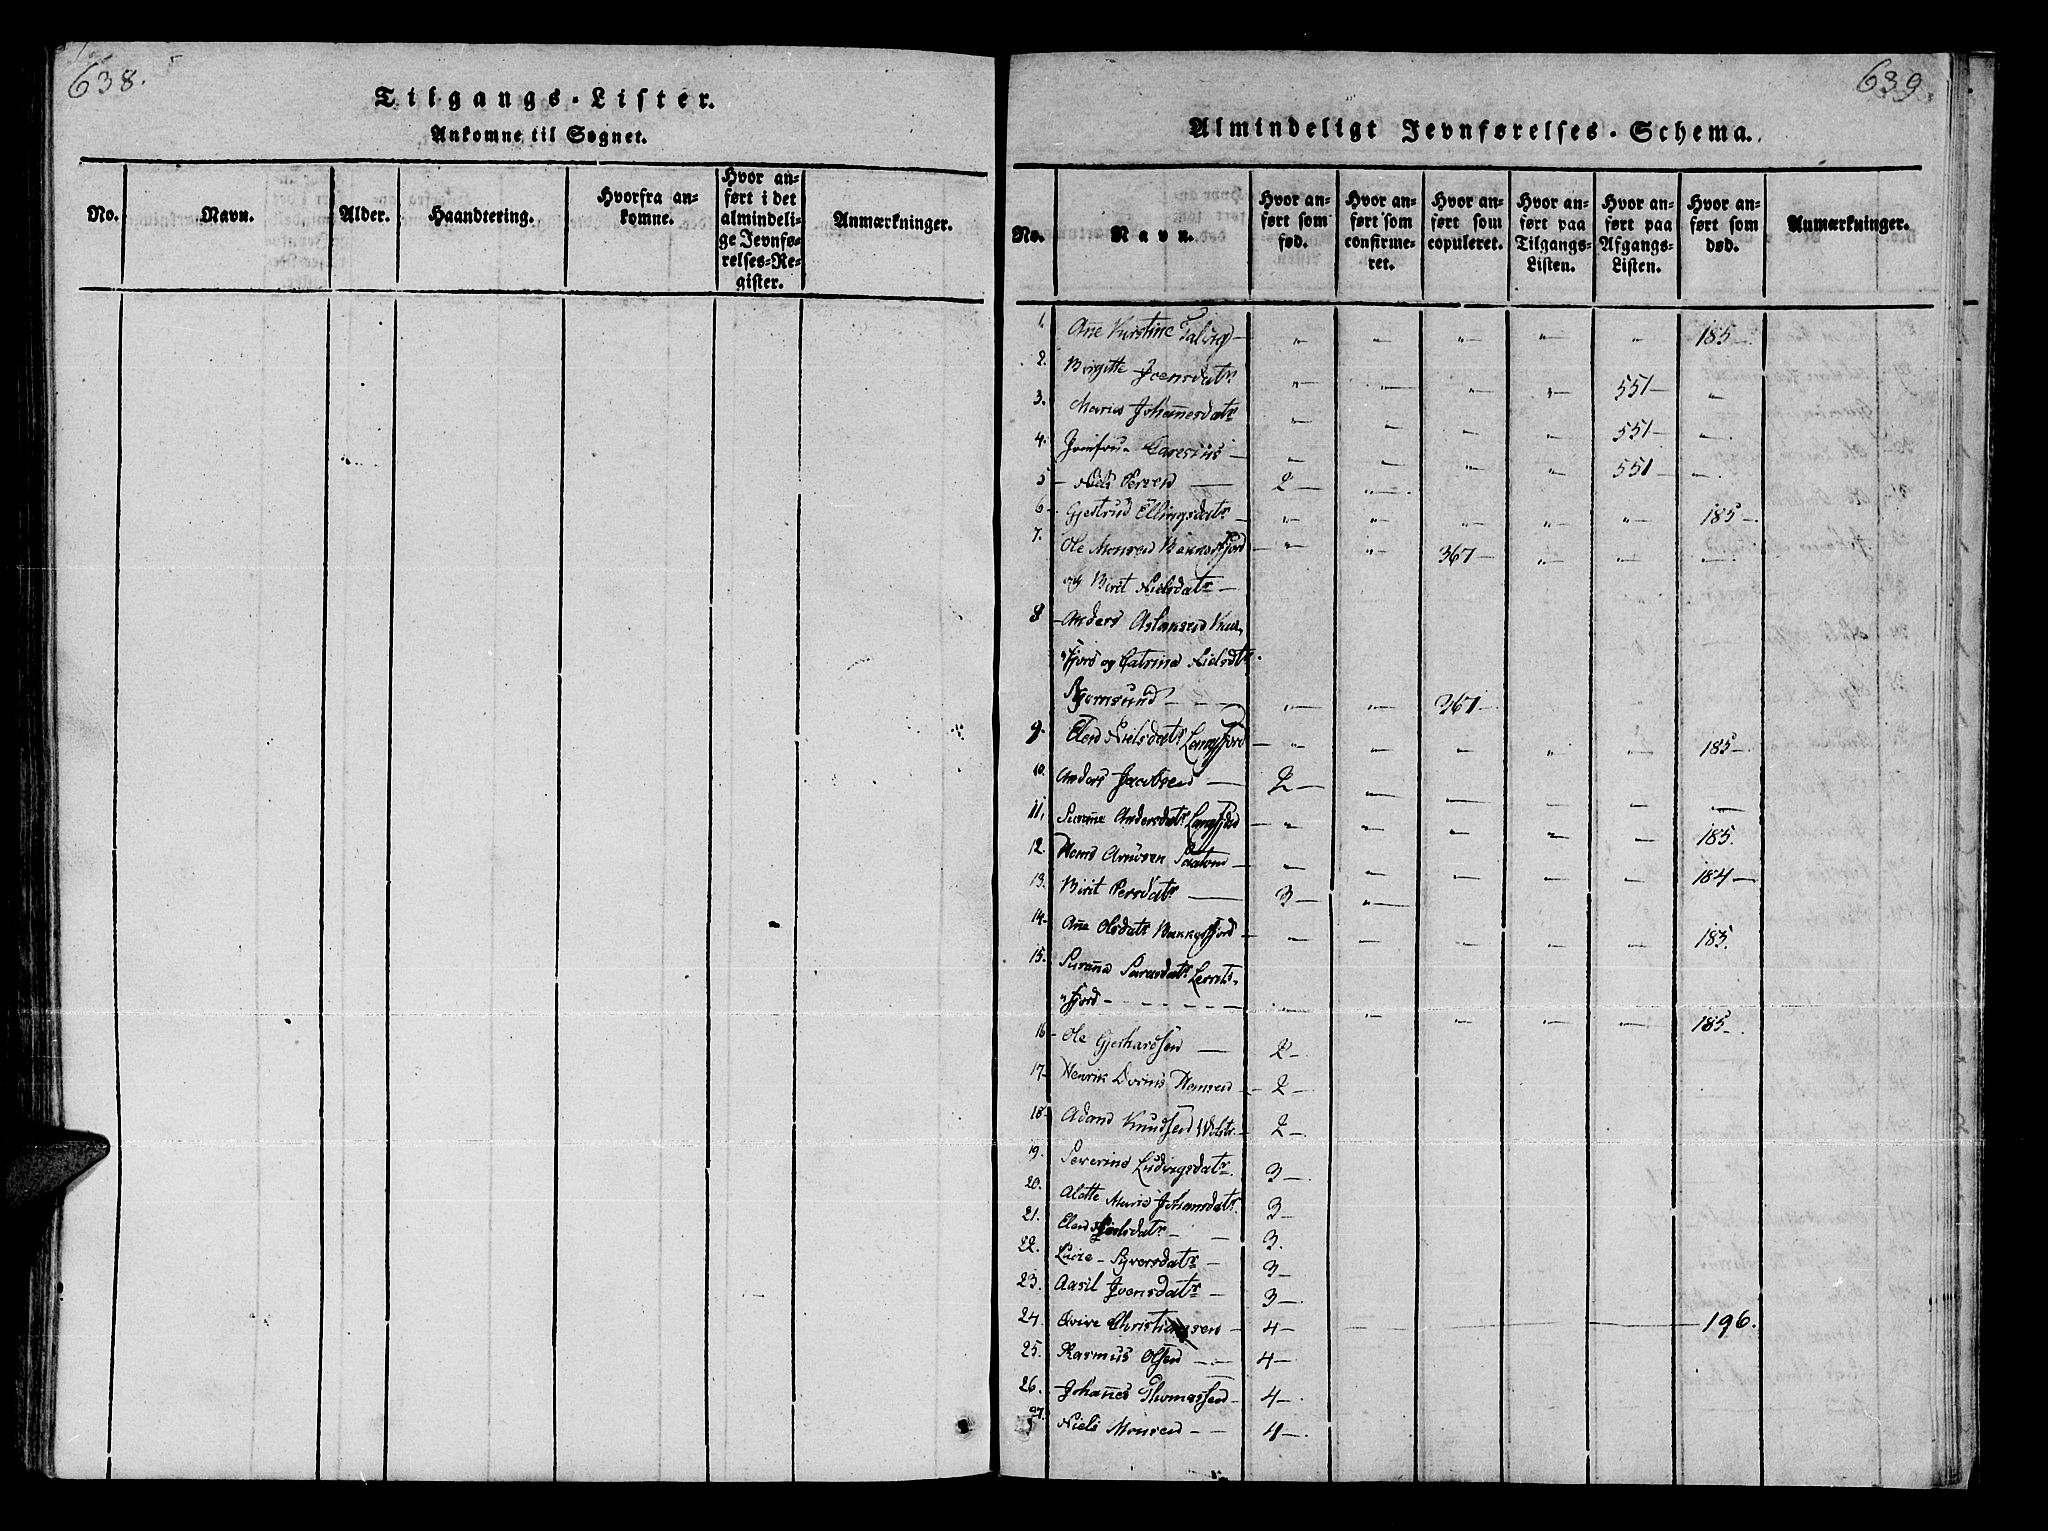 638.
Tilgangs-Lister.
Ankomne til Sognet.
No.
Navn.
Alder.
Haandtering.
Hvorfra an-
komne.
Hvor an-
ført i det
almindeli-
ge Jevnfø-
relses-Re-
gister.
Anmærkninger.
639
Almindeligt Jevnførelses-Schema.
No.
Navn.
Hvor an-
ført som
fød.
Hvor an-
ført som
confirme-
ret.
Hvor an-
ført som
copuleret.
Hvor an-
ført paa
Tilgangs-
Listen.
Hvor an-
ført paa
Afgangs-
Listen.
Hvor an-
ført som
død.
Anmærkninger.
1. Añe Kirstine Talvig — " " " " " 185 —
2. Birgitte Joensdatr " " " " 551 — "
3. Maria Johañesdatr " " " " 551 — "
4. Jomfrue — " " " " 551 — "
5 — Niels Persen — 2 — "
6 — Gjertrud Ellingsdatr — " " " " " 185 —
7. Ole Monsen Bekkerfjord — " " 367 — " " "
og Birit Nielsdatr —
8 — Anders Aslaksen
"fjord og Catrina Nielsdtr.
" " 367 —
9. Elen Nielsdatr Langfjord — " " " " " 185 —
10. Anders Jacobsen — 2 — " " " " "
11. Susañe Andersdatr Langfjord — " " " " " 185.
12. Hans Arnesen — " " " " " 184 —
13. Birit Persdatr — 3 — "
14 — Añe Olsdatr Bekkerfjord — " " " " " 185.
15. Susaña Larsdatr Lerrets-
"fjord — " " " " " 185 —
16 — Ole Gjerhardsen — 2 —
17 — Henrik Hansen — 2 —
18 — Adam Knudsen — 2 —
19. Severine Ludvigsdatr. 3 —
20. Alette Marie Johansdatr. 3 —
21. Elen Nielsdatr — 3.
22. Lucie — Syversdatr — 3 —
23. Aasil Joensdatr — 3 —
24. Christiansen — 4 — 196.
25. Rasmus Olsen — 4 —
26. Johañes Thomassen — 4 —
27. Niels Monsen — 4 —